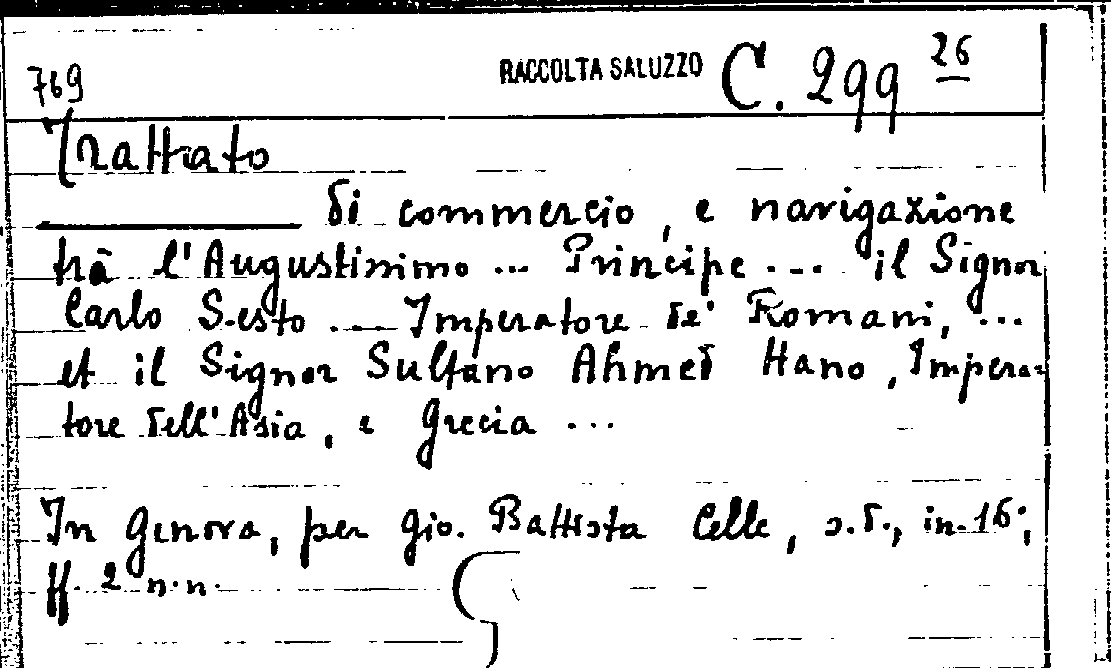 769 RACCOLTA SALUZZO C. 299 26
Trattato
di commercio, e navigazione
trà l'Augustissimo ... Principe ... il Signor
Carlo Sesto ... Imperatore de' Romani, ...
et il Signor Sultano Ahmed Hano, Impera-
tore dell'Asia, e Grecia ...
In Genova, per Gio. Battista Celle, s.d., in-16°,
ff. 2 n.n.